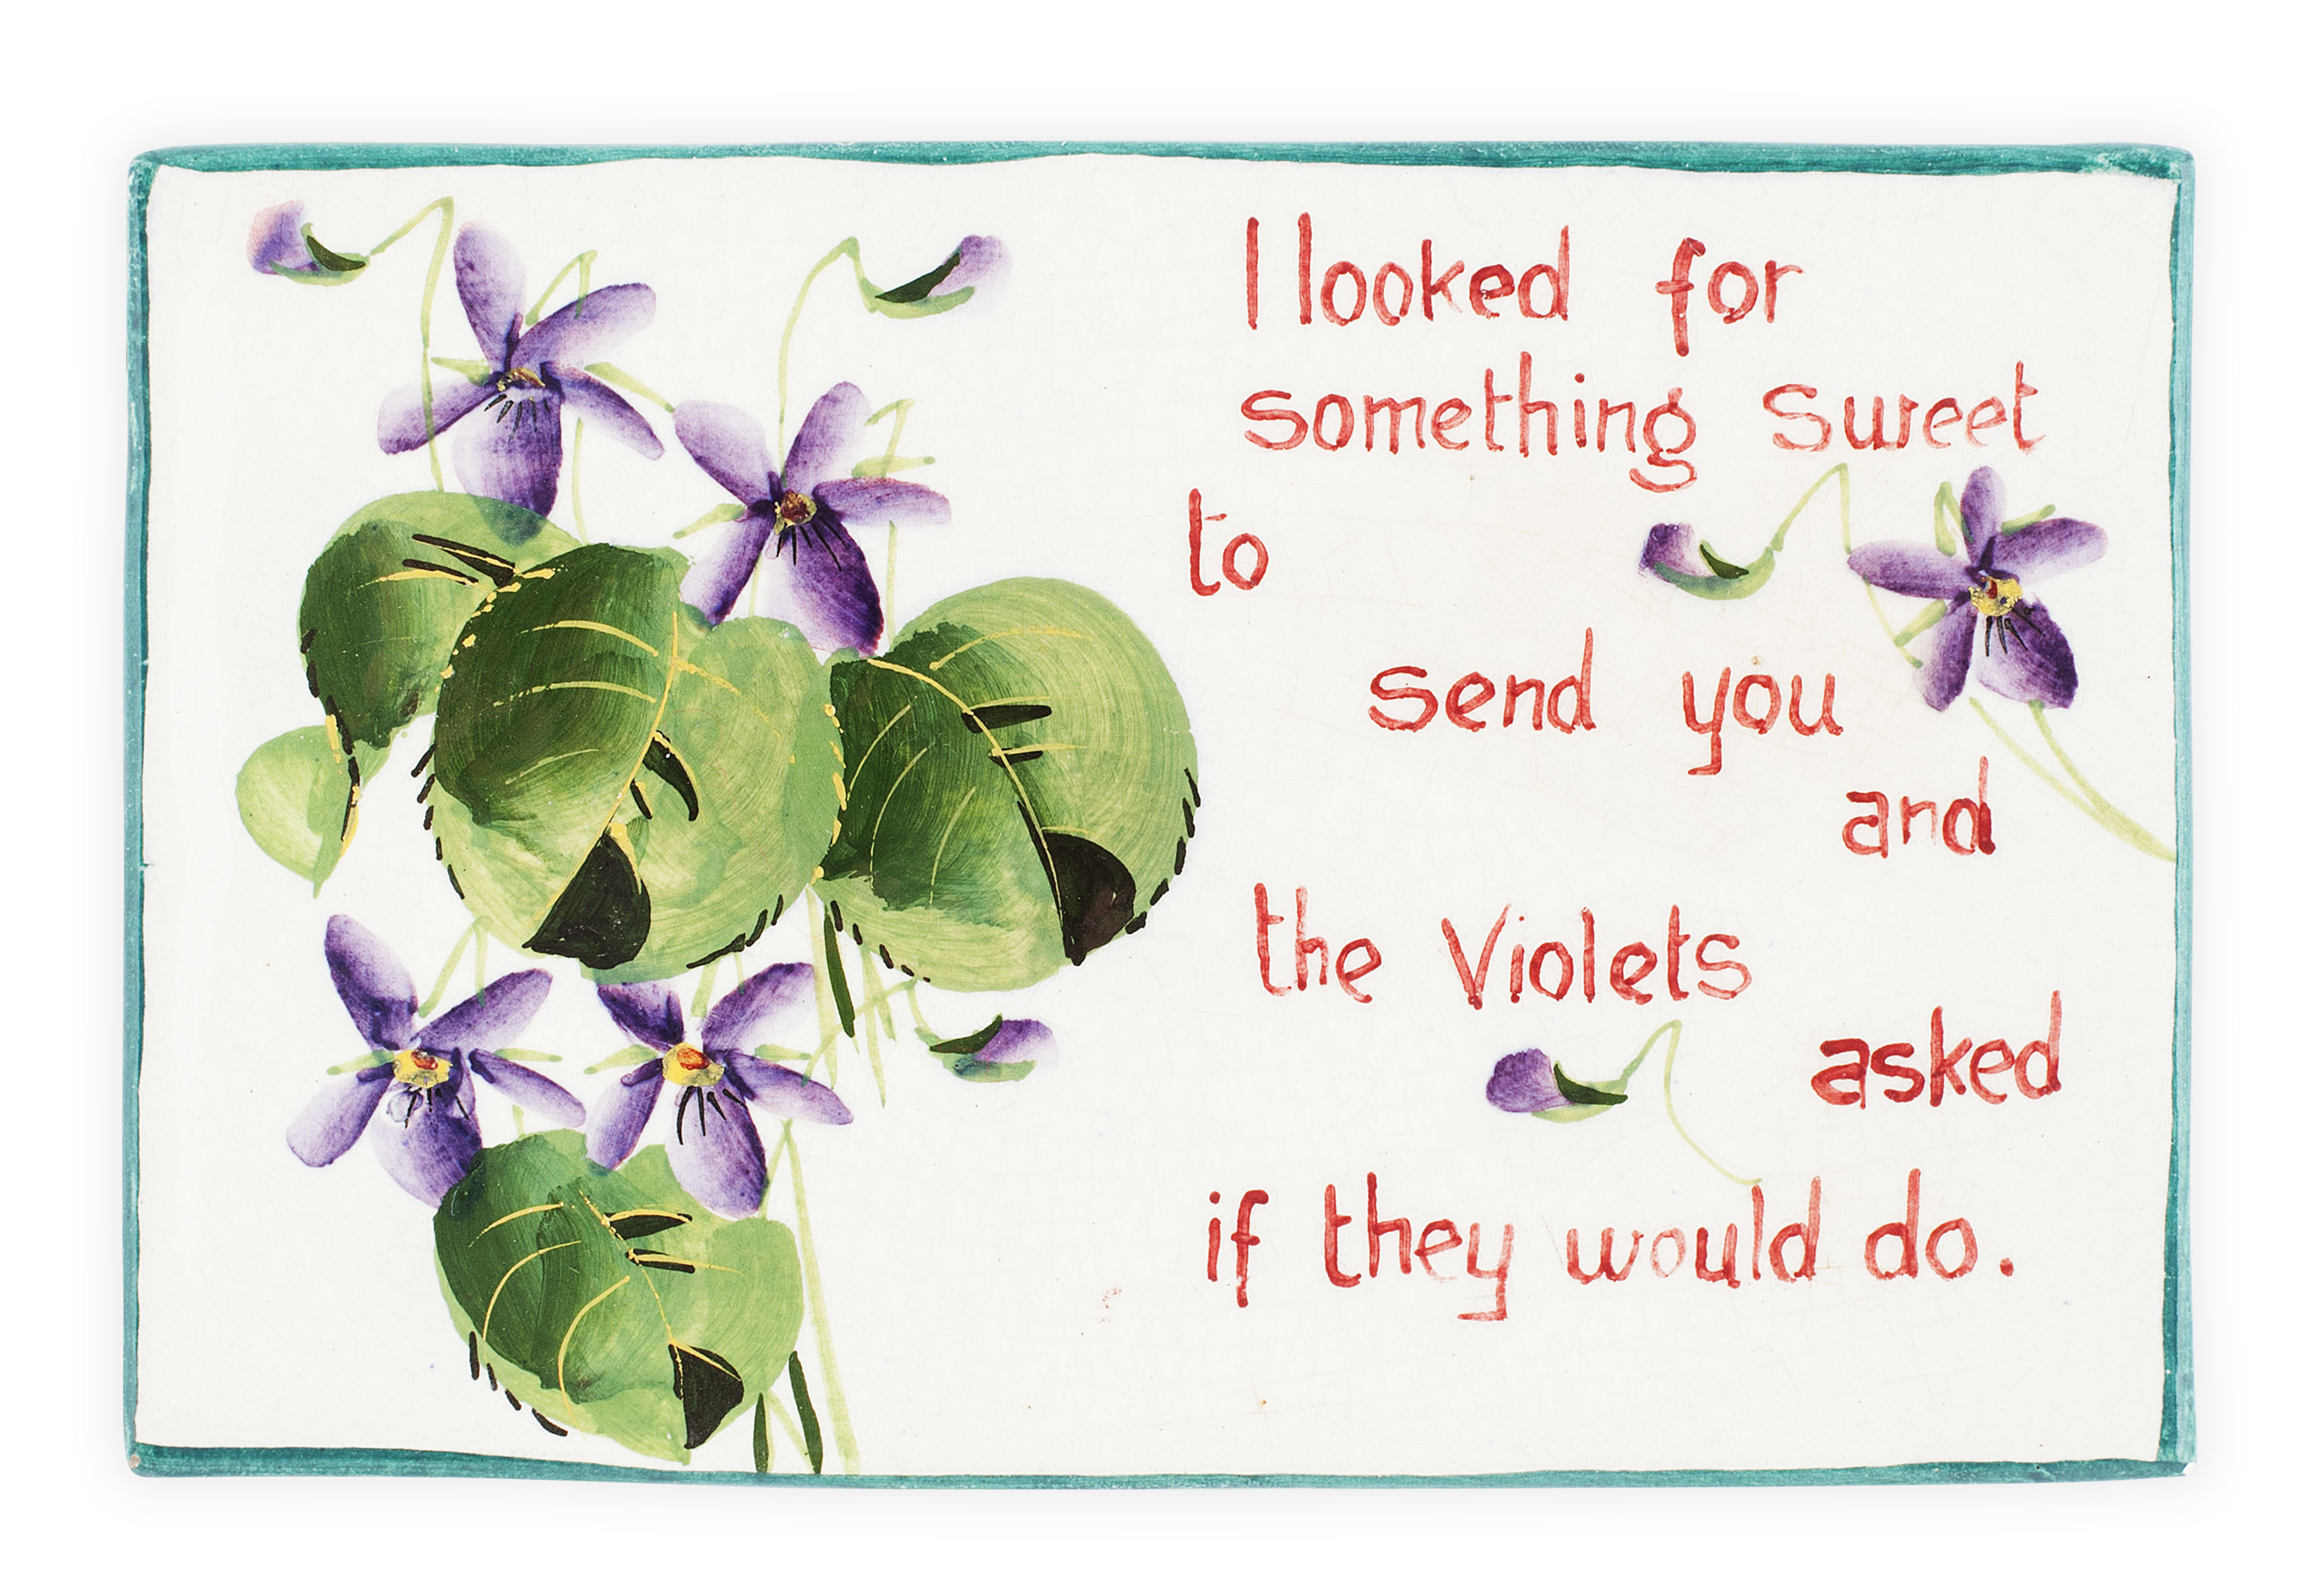 I looked for
something Sweet
to
send you
and
the Violets
asked
if they would do.